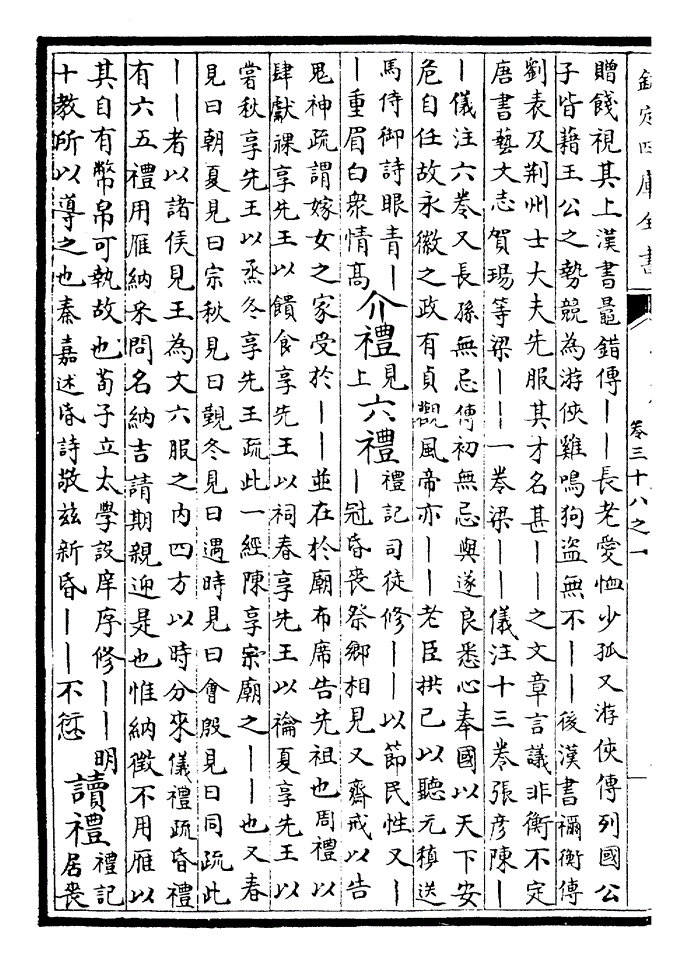 欽定四庫全書
卷三十八之一
贈餞視其上漢書鼂錯傳丨丨長老愛恤少孤又游俠傳列國公
子皆藉王公之勢競為游俠雞鳴狗盜無不丨丨後漢書禰衡傳
劉表及荆州士大夫先服其才名甚丨丨之文章言議非衡不定
唐書藝文志賀瑒等梁丨丨一卷梁丨丨儀注十三卷張彥陳丨
丨儀注六卷又長孫無忌傳初無忌與遂良悉心奉國以天下安
危自任故永徽之政有貞觀風帝亦丨丨老臣拱己以聽元稹送
馬侍御詩眼青丨
丨重眉白衆情高
介禮見上
六禮禮記司徒修丨丨以節民性又丨
丨冠昏喪祭鄉相見又齋戒以告
鬼神疏謂嫁女之家受於丨丨並在於廟布席告先祖也周禮以
肆獻祼享先王以饋食享先王以祠春享先王以禴夏享先王以
嘗秋享先王以烝冬享先王疏此一經陳享宗廟之丨丨也又春
見曰朝夏見曰宗秋見曰覲冬見曰遇時見曰會殷見曰同疏此
丨丨者以諸侯見王為文六服之内四方以時分來儀禮疏昏禮
有六五禮用雁納采問名納吉請期親迎是也惟納徵不用雁以
其自有幣帛可執故也荀子立太學設庠序修丨丨明
十教所以導之也秦嘉述昏詩敬兹新昏丨丨不愆
讀禮禮記
居喪